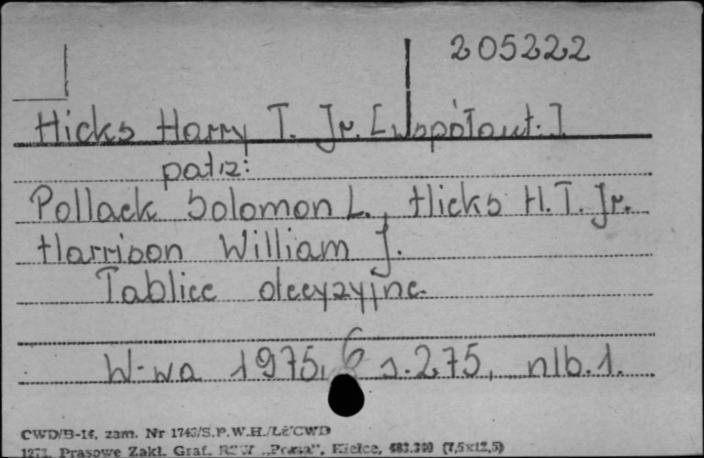 205222
Hicks Harry T. Jr. [współaut.]
patrz:
Pollack Solomon L., Hicks H.T. Jr.
Harrison William J.
Tablice decyzyjne.
W-wa 1975, 6 s. 275, nlb. 1.
CWD/B-14, zam. Nr /S.P.W.H./LčCWD
Prasowe Zakł. Graf. RSW „Prasa", Kielce, (7,5x12,5)